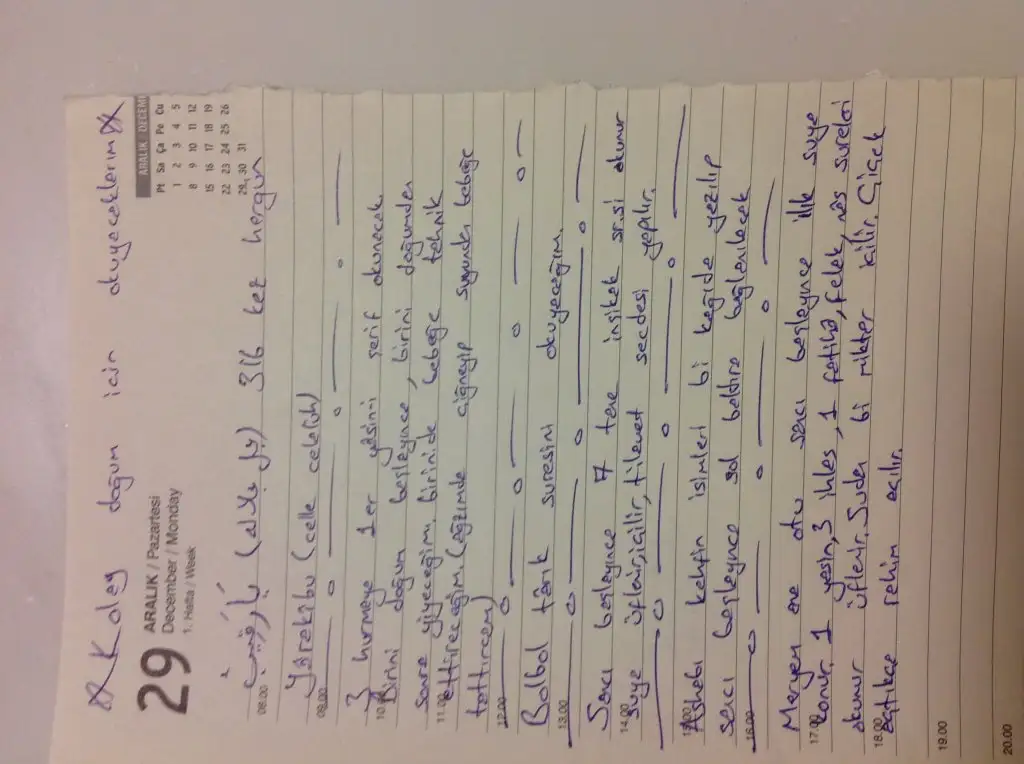 Kolay doğum icin okuyacaklarım
29 ARALIK / Pazartesi
December / Monday
1. Hafta / Week
ARALIK DECEM
Pt Sa Ça Pe Cu
1 2 3 4 5
8 9 10 11 12
15 16 17 18 19
22 23 24 25 26
29 30 31
08.00
يَا رَقِيبُ 316 kez hergün
Ya rakibu (celle celelüh)
09.00
3 hurmaya 1 er yasini şerif okunacak.
10.00
Birini doğum başlayınca, birini doğumdan
sonra yiyeceğim, birinide bebeğe tehnik
11.00
ettireceğim. (Ağzımda ciğneyip suyundan bebeğe
tattırcem)
12.00
Bolbol tarık suresini okuyacağım.
13.00
Sancı başlayınca 7 tane inşikak sr.si okunur
14.00
suya üflenir, içilir, tilavet secdesi yapılır.
15.00
Ashabı kehfin isimleri bi kağıda yazılıp
sancı başlayınca sol baldıra bağlanılacak
16.00
Meryem ana otu sancı başlayınca ılık suya
17.00
konur. 1 yasin, 3 ihlas, 1 fatiha, felak, nas sureleri
okunur üflenir. Sudan bi miktar içilir. Çiçek
18.00
açtıkça rahim açılır.
19.00
20.00